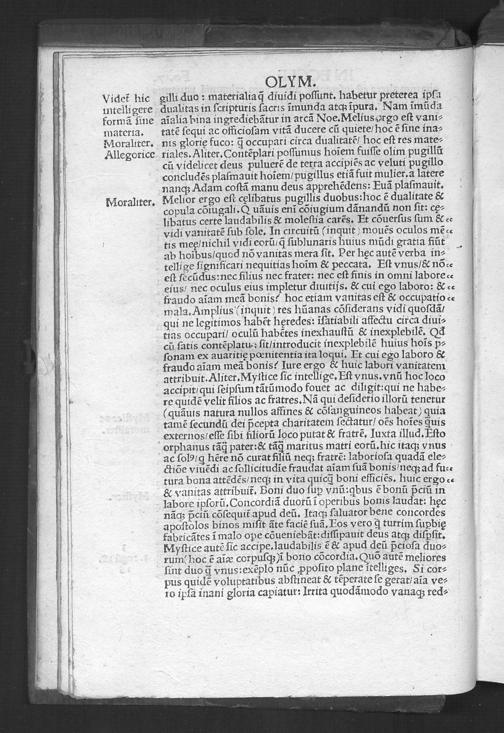 OLYM.
Videt̃ hic
intelligere
formã sine
materia.
Moraliter.
Allegorice
Moraliter.
gilli duo: materialiaq̃ diuidi possunt. habetur preterea ipsa
dualitas in scripturis sacris ĩmunda atq; ĩpura. Nam ĩmũda
aĩalia bina ingrediebãtur in arcã Noe. Melius ergo est vani⸗
tatẽ sequi ac officiosam vitã ducere cũ quiete/ hoc ẽ sine ina⸗
nis gloriẹ fuco: q̃ occupari circa dualitatẽ/ hoc est res mate⸗
riales. Aliter. Contẽplari possumus hoĩem fuisse olim pugillũ
cũ videlicet deus puluerẽ de terra accipiẽs ac veluti pugillo
concludẽs plasmauit hoĩem/ pugillus etiã fuit mulier. a latere
nanq; Adam costã manu deus apprehẽdens: Euã plasmauit.
Melior ergo est cẹlibatus pugillis duobus: hoc ẽ dualitate &
copula cõiugali. Q uãuis eni cõiugium dãnandũ non sit: cẹ⸗
libatus certe laudabilis & molestia carẽs. Et cõuersus sum &
vidi vanitatẽ sub sole. In circuitũ (inquit) mouẽs oculos mẽ⸗
tis meẹ/ nichil vidi eorũ/ q̃ sublunaris huius mũdi gratia fiũt
ab hoĩbus/ quod nõ vanitas mera sit. Per hẹc autẽ verba in⸗
tellige significari nequitias hoĩm & peccata. Est vnus/ & nõ
est secũdus: nec filius nec frater: nec est finis in omni labore
eius/ nec oculus eius impletur diuitijs. & cui ego laboro: &
fraudo aĩam meã bonis? hoc etiam vanitas est & occupatio
mala. Amplius (inquit) res hũanas cõsiderans vidi quosdã/
qui ne legitimos habẽt heredes: ĩsatiabili affectu circa diui⸗
tias occupari/ oculũ habẽtes inexhaustũ & inexplebilẽ. Qđ
cũ satis contẽplatus sit/ introducit inexplebilẽ huius hoĩs p̱⸗
sonam ex auaritiẹ pœnitentia ita loqui. Et cui ego laboro &
fraudo aĩam meã bonis? Iure ergo & huic labori vanitatem
attribuit. Aliter. Mystice sic intellige. Est vnus. vnũ hoc loco
accipit/ qui seipsum tãtũmodo fouet ac diligit: qui ne habe⸗
re quidẽ velit filios ac fratres. Nã qui desiderio illorũ tenetur
(quãuis natura nullos affines & cõsanguineos habeat) quia
tamẽ secundũ dei p̃cepta charitatem sectatur/ oẽs hoĩes q̃uis
externos/ esse sibi filiorũ loco putat & fratrẽ. Iuxta illud. Esto
orphanus tãq̃ pater: & tãq̃ maritus matri eorũ. hic itaq; vnus
ac solꝰ/ q̃ hẽre nõ curat filiũ neq; fratrẽ: laboriosa quadã ele⸗
ctiõe viuẽdi ac sollicitudĩe fraudat aĩam suã bonis/ neq; ad fu⸗
tura bona attẽdẽs/ neq; in vita quicq̃ boni efficiẽs. huic ergo
& vanitas attribuit̃. Boni duo sup vnũ: qbus ẽ bonũ p̃ciũ in
labore ipsorũ. Concordiã duorũ ĩ operibus bonis laudat: hẹc
nãq; p̃ciũ cõsequit̃ apud deũ. Itaq; saluator bene concordes
apostolos binos misit ãte faciẽ suã. Eos vero q̃ turrim supbiẹ
fabricãtes ĩ malo ope cõueniebãt: dissipauit deus atq; disp̱sit.
Mystice autẽ sic accipe. laudabilis ẽ & apud deũ p̃ciosa duo⸗
rum (hoc ẽ aĩæ corpusq;) ĩ bono cõcordia. Quo autẽ meliores
sint duo q̃ vnus: exẽplo nũc ꝓposito plane ĩtelliges. Si cor⸗
pus quidẽ voluptatibus abstineat & tẽperate se gerat/ aĩa ve⸗
ro ipsa inani gloria capiatur: Irrita quodãmodo vanaq; red⸗